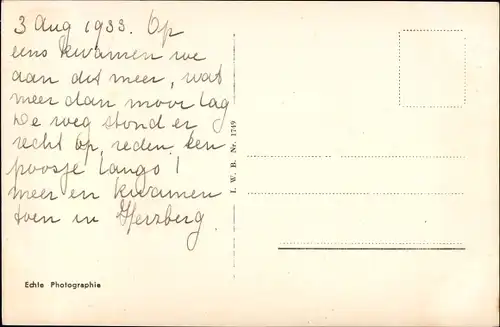 3 Aug 1933. Op
eens kwamen we
aan dit meer, wat
meer dan mooi lag
De weg stond er
recht op, reden een
poosje langs 't
meer en kwamen
toen in Herzberg.
I. W. B. Nr. 1749
Echte Photographie